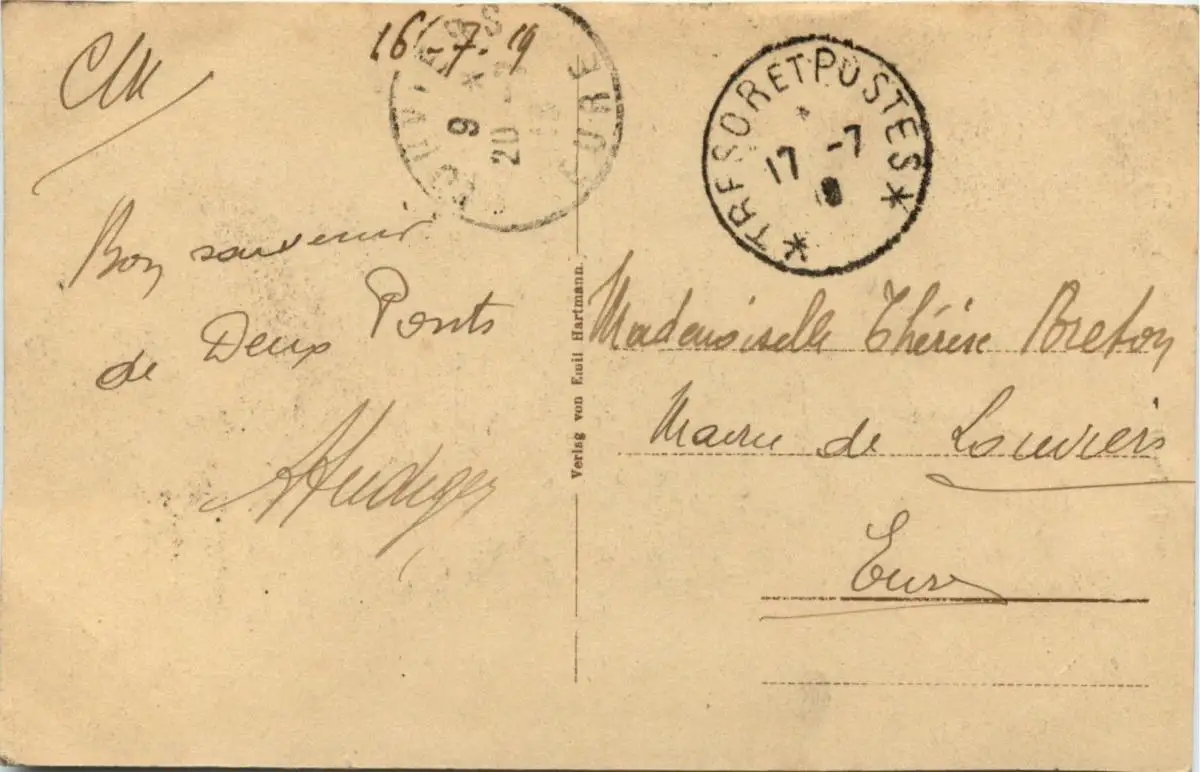 16-7-19
LOUVIERS
9
20 -7
EURE
TRESOR ET POSTES
17 -7
Bon souvenir
de Deux Ponts
Verlag von Emil Hartmann.
Mademoiselle Thérèse Breton
Mairie de Louviers
Eure